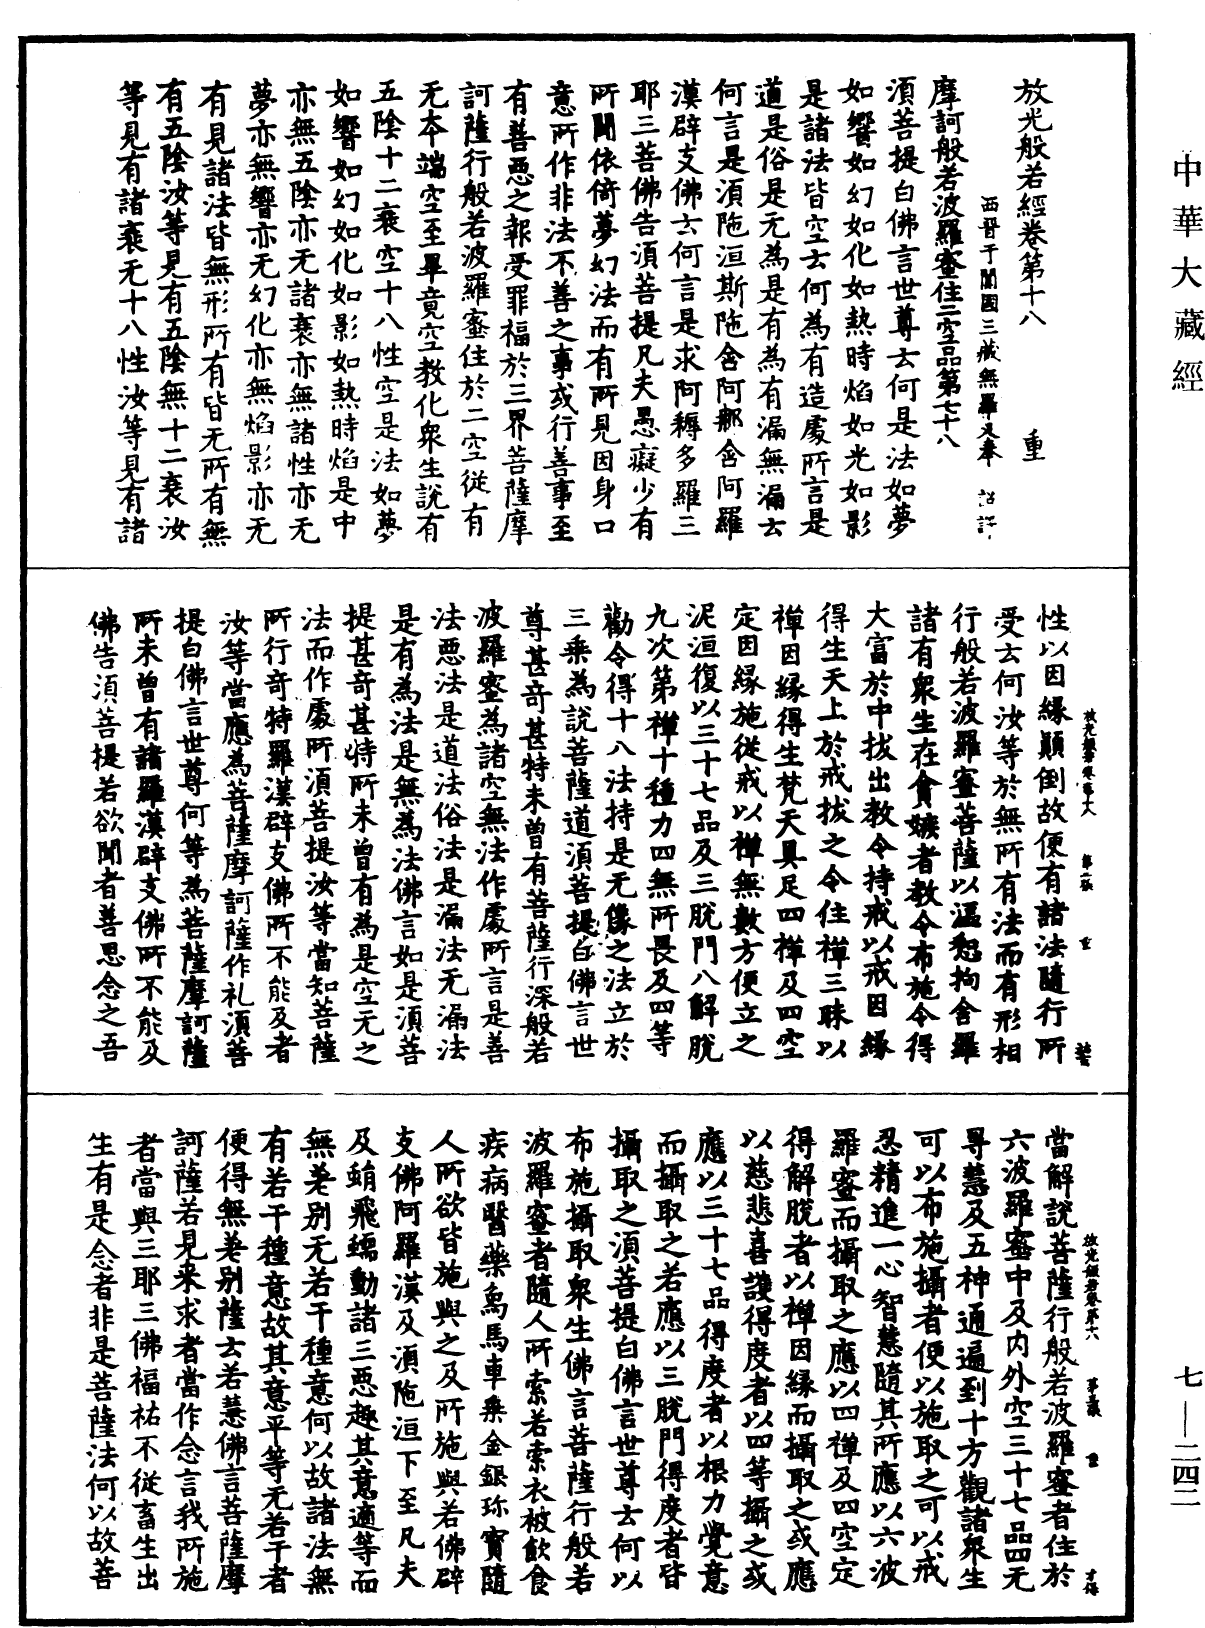 中華大藏經
放光般若經卷第十八　重
西晉于闐國三藏無羅叉奉 詔譯
摩訶般若波羅蜜住二空品第七十八
湏菩提白佛言世尊云何是法如夢
如響如幻如化如熱時焰如光如影
是諸法皆空云何為有造處所言是
道是俗是无為是有為有漏無漏云
何言是湏陁洹斯陁含阿那含阿羅
漢辟支佛云何言是求阿耨多羅三
耶三菩佛告湏菩提凡夫愚癡少有
所聞依倚夢幻法而有所見因身口
意所作非法不善之事或行善事至
有善惡之報受罪福於三界菩薩摩
訶薩行般若波羅蜜住於二空從有
无本端空至畢竟空教化衆生說有
五陰十二衰空十八性空是法如夢
如響如幻如化如影如熱時焰是中
亦無五陰亦无諸衰亦無諸性亦无
夢亦無響亦无幻化亦無焰影亦无
有見諸法皆無形所有皆无所有無
有五陰汝等見有五陰無十二衰汝
等見有諸衰无十八性汝等見有諸
性以因緣顛倒故便有諸法隨行所
受云何汝等於無所有法而有形相
行般若波羅蜜菩薩以漚惒拘舍羅
諸有衆生在貪嫉者教令布施令得
大富於中拔出教令持戒以戒因緣
得生天上於戒拔之令住禪三昧以
禪因緣得生梵天具足四禪及四空
定因緣施從戒以禪無數方便立之
泥洹復以三十七品及三脫門八解脫
九次第禪十種力四無所畏及四等
勸令得十八法持是无像之法立於
三乘為說菩薩道湏菩提白佛言世
尊甚奇甚特未曾有菩薩行深般若
波羅蜜為諸空無法作處所言是善
法惡法是道法俗法是漏法无漏法
是有為法是無為法佛言如是湏菩
提甚奇甚特所未曾有為是空无之
法而作處所湏菩提汝等當知菩薩
所行奇特羅漢辟支佛所不能及者
汝等當應為菩薩摩訶薩作礼湏菩
提白佛言世尊何等為菩薩摩訶薩
所未曾有諸羅漢辟支佛所不能及
佛告湏菩提若欲聞者善思念之吾
當解說菩薩行般若波羅蜜者住於
六波羅蜜中及内外空三十七品四无
导慧及五神通遍到十方觀諸衆生
可以布施攝者便以施取之可以戒
忍精進一心智慧隨其所應以六波
羅蜜而攝取之應以四禪及四空定
得解脫者以禪因緣而攝取之或應
以慈悲喜護得度者以四等攝之或
應以三十七品得度者以根力覺意
而攝取之若應以三脫門得度者皆
攝取之湏菩提白佛言世尊云何以
布施攝取衆生佛言菩薩行般若
波羅蜜者隨人所索若索衣被飲食
疾病醫藥鳥馬車乘金銀珎寶隨
人所欲皆施與之及所施與若佛辟
支佛阿羅漢及湏陁洹下至凡夫
及蜎飛蠕動諸三惡趣其意適等而
無差別无若干種意何以故諸法無
有若干種意故其意平等无若干者
便得無差別薩云若慧佛言菩薩摩
訶薩若見来求者當作念言我所施
者當與三耶三佛福祐不從畜生出
生有是念者非是菩薩法何以故菩
七—二四二